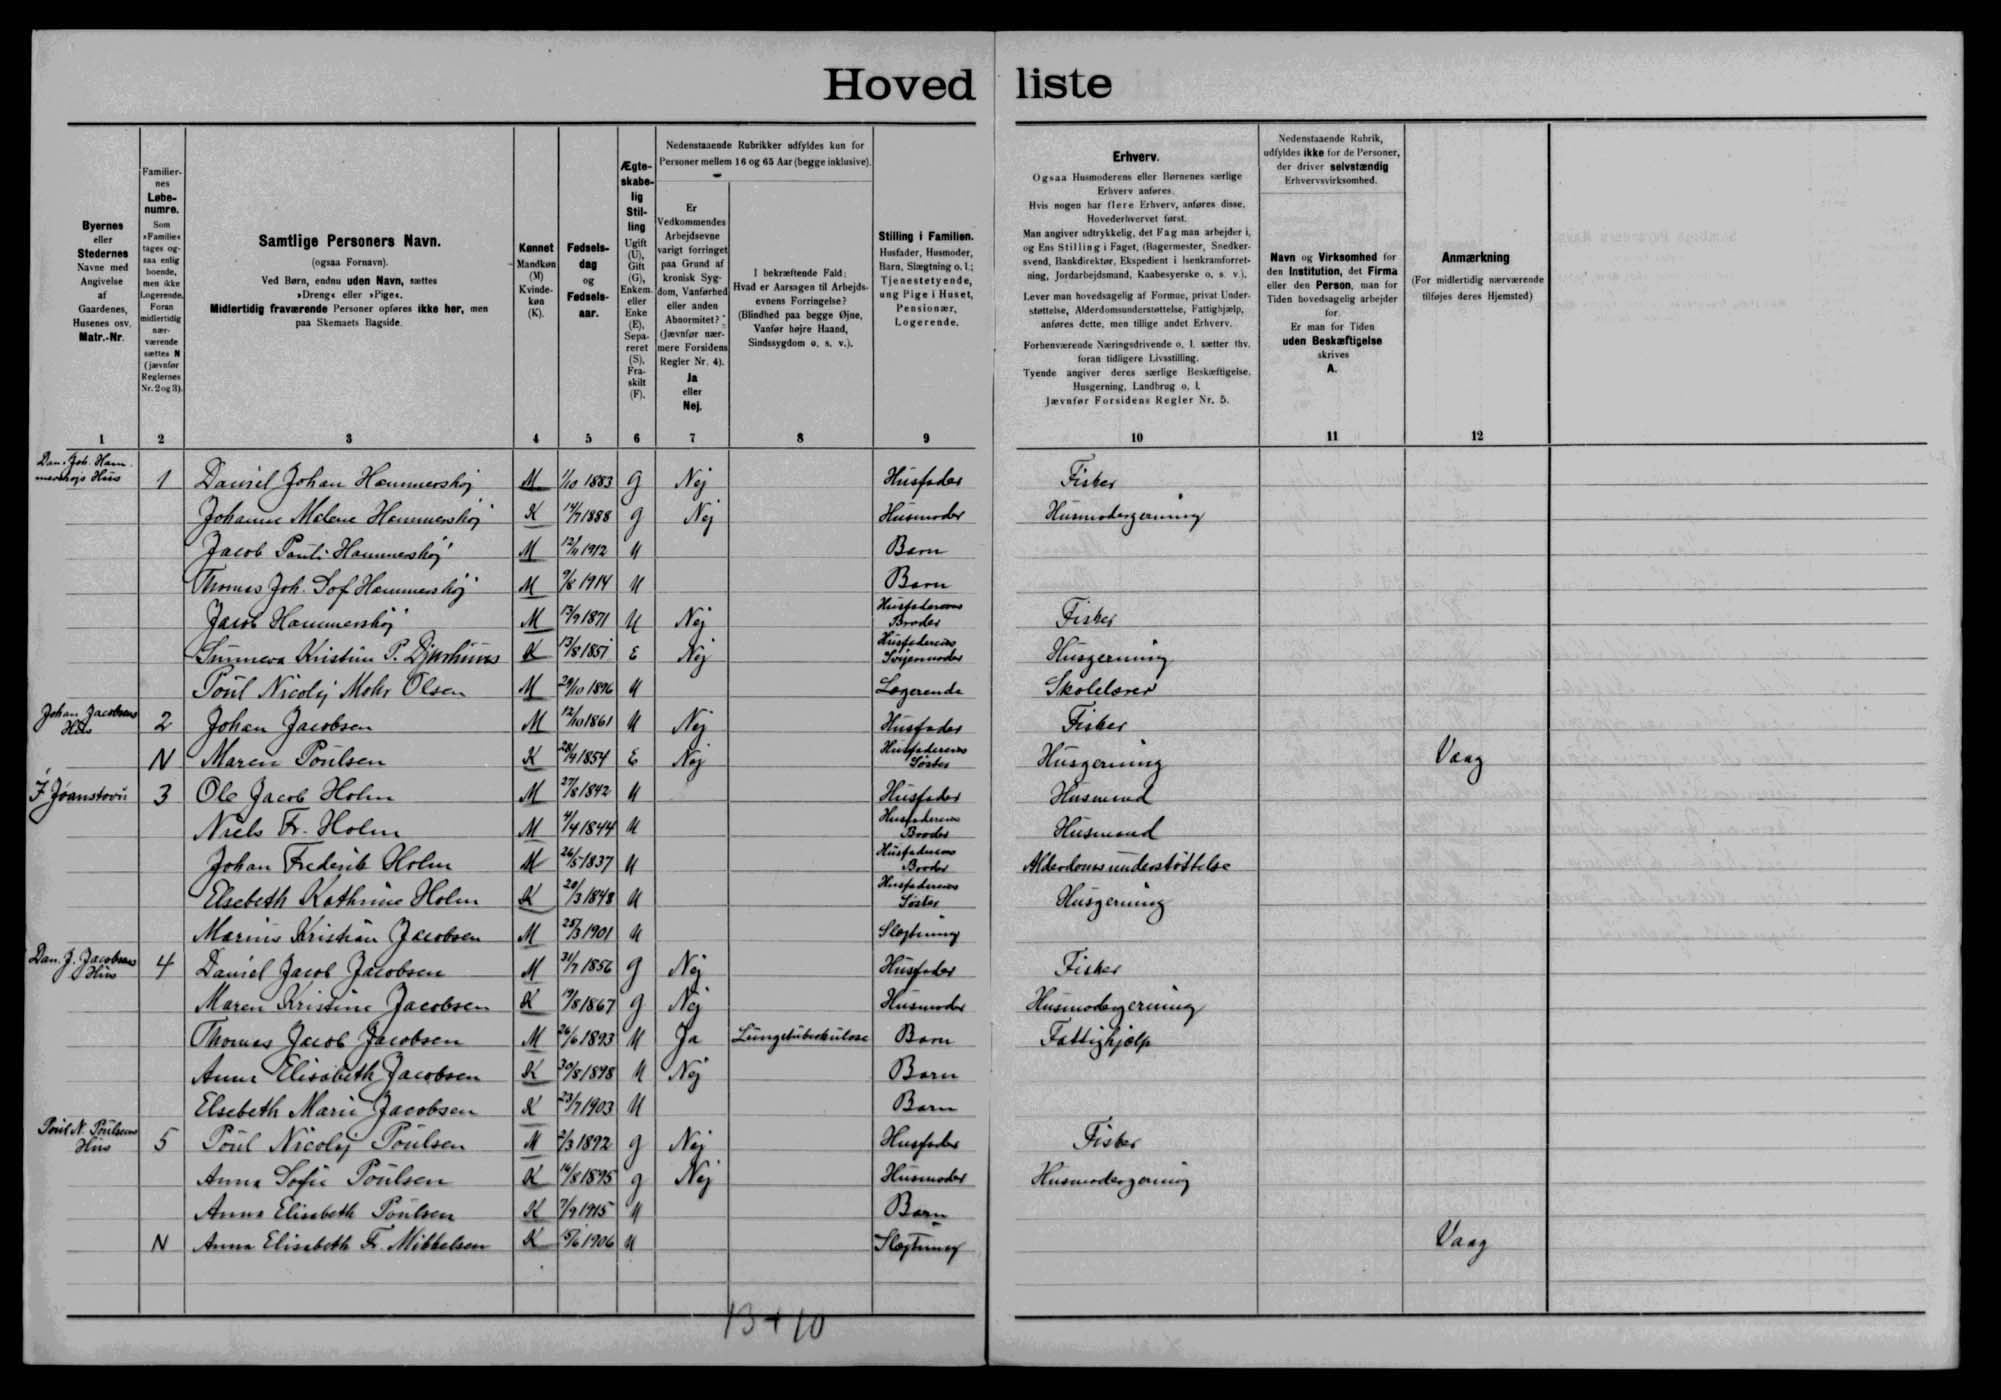 Hoved liste
Byernes
eller
Stedernes
Navne med
Angivelse
af
Gaardenes,
Husenes osv.
Matr.-Nr.
Familier-
nes
Løbe-
numre.
Som
»Familie«
tages og-
saa enlig
boende,
men ikke
Logerende.
Foran
midlertidig
nær-
værende
sættes N
(jævnfør
Reglernes
Nr. 2 og 3).
Samtlige Personers Navn.
(ogsaa Fornavn).
Ved Børn, endnu uden Navn, sættes
»Dreng« eller »Pige«.
Midlertidig fraværende Personer opføres ikke her, men
paa Skemaets Bagside.
Kønnet
Mandkøn
(M)
Kvinde-
køn
(K).
Fødsels-
dag
og
Fødsels-
aar.
Ægte-
skabe-
lig
Stil-
ling
Ugift
(U),
Gift
(G),
Enkem.
eller
Enke
(E),
Sepa-
reret
(S),
Fra-
skilt
(F).
Nedenstaaende Rubrikker udfyldes kun for
Personer mellem 16 og 65 Aar (begge inklusive).
Er
Vedkommendes
Arbejdsevne
varigt forringet
paa Grund af
kronisk Syg-
dom, Vanførhed
eller anden
Abnormitet?
(Jævnfør nær-
mere Forsidens
Regler Nr. 4).
Ja
eller
Nej.
I bekræftende Fald:
Hvad er Aarsagen til Arbejds-
evnens Forringelse?
(Blindhed paa begge Øjne,
Vanfør højre Haand,
Sindssygdom o. s. v.).
Stilling i Familien.
Husfader, Husmoder,
Barn, Slægtning o. l.;
Tjenestetyende,
ung Pige i Huset,
Pensionær,
Logerende.
Erhverv.
Ogsaa Husmoderens eller Børnenes særlige
Erhverv anføres.
Hvis nogen har flere Erhverv, anføres disse,
Hovederhvervet først.
Man angiver udtrykkelig, det Fag man arbejder i,
og Ens Stilling i Faget, (Bagermester, Snedker-
svend, Bankdirektør, Ekspedient i Isenkramforret-
ning, Jordarbejdsmand, Kaabesyerske o. s. v.).
Lever man hovedsagelig af Formue, privat Under-
støttelse, Alderdomsunderstøttelse, Fattighjælp,
anføres dette, men tillige andet Erhverv.
Forhenværende Næringsdrivende o. l. sætter thv.
foran tidligere Livsstilling.
Tyende angiver deres særlige Beskæftigelse,
Husgerning, Landbrug o. l.
Jævnfør Forsidens Regler Nr. 5.
Nedenstaaende Rubrik,
udfyldes ikke for de Personer,
der driver selvstændig
Erhvervsvirksomhed.
Navn og Virksomhed for
den Institution, det Firma
eller den Person, man for
Tiden hovedsagelig arbejder
for.
Er man for Tiden
uden Beskæftigelse
skrives
A.
Anmærkning
(For midlertidig nærværende
tilføjes deres Hjemsted)
1 2 3 4 5 6 7 8 9 10 11 12
Dan. Joh. Ham-
mershøjs Hus 1 Daniel Johan Hammershøj M 1/10 1883 G Nej Husfader Fisker
Johanne Malene Hammershøj K 14/7 1888 G Nej Husmoder Husmodergerning
Jacob Pauli Hammershøj M 12/11 1912 U Barn
Thomas Joh. Sof Hammershøj M 9/8 1914 U Barn
Jacob Hammershøj M 13/9 1871 U Nej Husfaderens Broder Fisker
Sunneva Kristine P. Djurhuus K 13/8 1851 E Nej Husfaderens Svigermoder Husgerning
Poul Nicolej Mohr Olsen M 29/10 1896 U Logerende Skolelærer
Johan Jacobsens
Hus 2 Johan Jacobsen M 12/10 1861 U Nej Husfader Fisker
N Maren Poulsen K 28/9 1854 E Nej Husfaderens Søster Husgerning Vaag
I Jóanstovu 3 Ole Jacob Holm M 27/8 1842 U Husfader Husmand
Niels Fr. Holm M 4/4 1844 U Husfaderens Broder Husmand
Johan Frederik Holm M 26/5 1837 U Husfaderens Broder Alderdomsunderstøttelse
Elsebeth Kathrine Holm K 20/3 1848 U Husfaderens Søster Husgerning
Marius Kristian Jacobsen M 25/3 1901 U Slægtning
Dan. J. Jacobsens
Hus 4 Daniel Jacob Jacobsen M 31/7 1856 G Nej Husfader Fisker
Maren Kristine Jacobsen K 19/8 1867 G Nej Husmoder Husmodergerning
Thomas Jacob Jacobsen M 26/6 1893 U Ja Lungetuberkulose Barn Fattighjælp
Anna Elisabeth Jacobsen K 30/8 1898 U Nej Barn
Elsebeth Marie Jacobsen K 23/7 1903 U Barn
Poul N. Poulsens
Hus 5 Poul Nicolej Poulsen M 2/3 1892 G Nej Husfader Fisker
Anna Sofie Poulsen K 16/8 1895 G Nej Husmoder Husmodergerning
Anna Elisabeth Poulsen K 7/9 1915 U Barn
N Anna Elisabeth Fr. Mikkelsen K 15/6 1906 U Slægtning Vaag
13+10